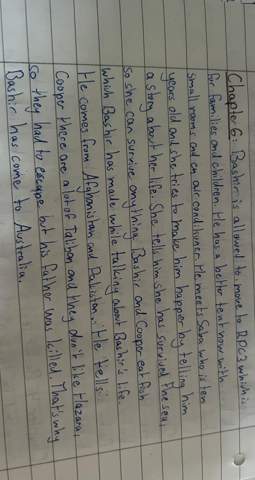 Chapter 6: Bashir is allowed to move to RPC3 which is
for families and children. He has a better tent now with
small rooms and an air conditioner. He meets Saba who is ten
years old and she tries to make him happer by telling him
a story about her life. She tells him she has survived the sea,
so she can survive anything. Bashir and Cooper eat fish
which Bashir has made while talking about Bashir's life.
He comes from Afghanistan and Pakistan. He tells
Cooper there are a lot of Taliban and they don't like Hazara,
so they had to escape but his father was killed. That's why
Bashir has come to Australia.